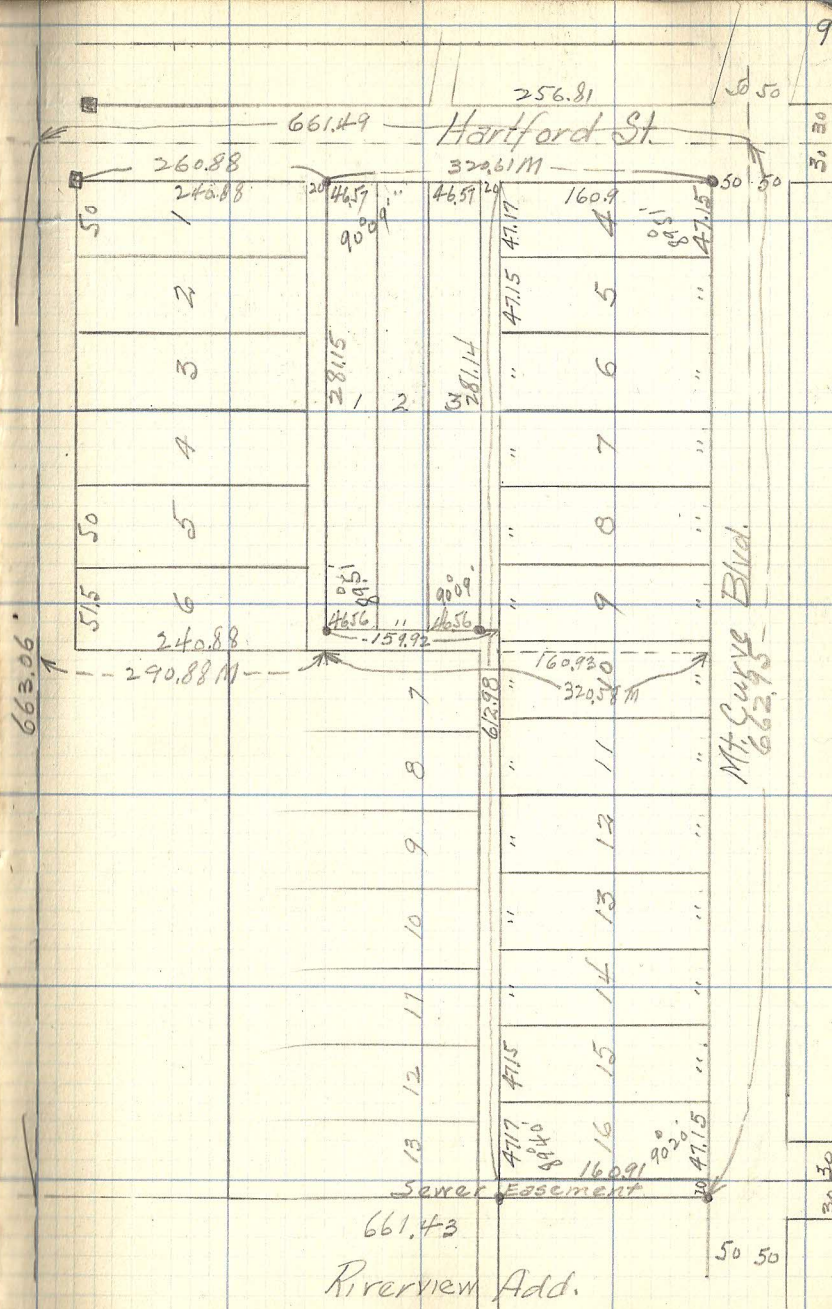 9
256.81
50 50
661.49
Hartford St.
30 30
260.88
320.61 M
50 50
240.88
20
46.57
"
46.57
20
160.9
50
1
90°09'
47.17
4
89°51'
47.15
2
47.15
5
"
3
281.15
1
2
3
281.14
"
6
"
4
"
7
"
50
5
"
8
"
51.5
6
89°51'
90°09'
"
9
"
46.56
"
46.56
240.88
159.92
160.93
663.06
290.88 M
7
612.98
"
10
320.58 M
"
Mt. Curve Blvd.
662.95
8
"
11
"
9
"
12
"
10
"
13
"
11
"
14
"
12
47.15
15
"
13
47.17
89°40'
16
90°20'
47.15
160.91
30
Sewer Easement
10
30
661.43
50 50
Riverview Add.